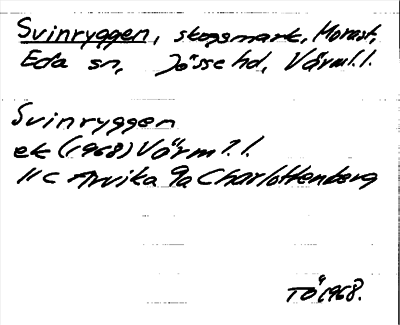 Svinryggen, skogsmark, Morast,
Eda sn, Jösse hd, Värml.l.
Svinryggen
ek (1968) Värml.l.
11c Arvika 9a Charlottenberg
TÖ 1968.